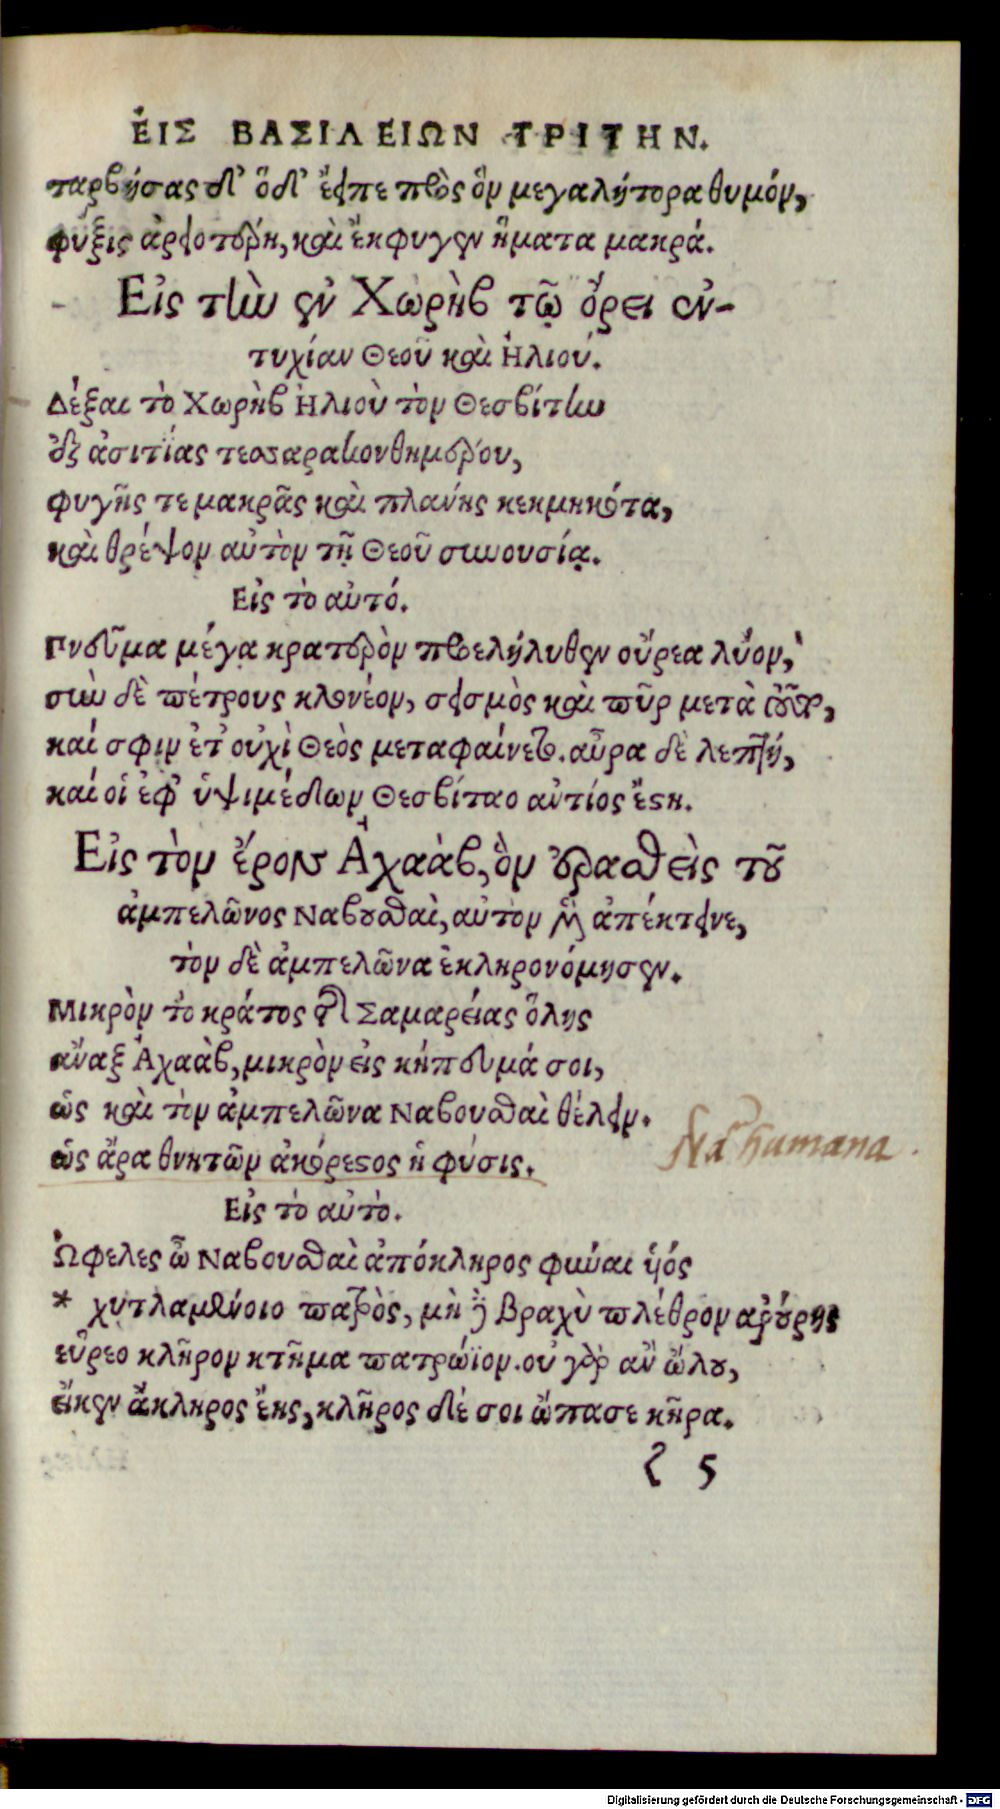 ἘΙΣ ΒΑΣΙΛΕΙΩΝ ΤΡΙΤΗΝ.
ταρβήσας δ' ὅδ' ἔειπε πρὸς ὃν μεγαλήτορα θυμόν,
φύξις ἀρειοτέρη, καὶ ἔκφυγεν ἤματα μακρά.
Εἰς τὴν ἐν Χωρὴβ τῷ ὄρει ἐν-
τυχίαν Θεοῦ καὶ Ἠλιού.
Δέξαι τὸ Χωρὴβ Ἠλιοὺ τὸν Θεσβίτην
ἐξ ἀσιτίας τεσσαρακονθημέρου,
φυγῆς τε μακρᾶς καὶ πλάνης κεκμηκότα,
καὶ θρέψον αὐτὸν τῇ Θεοῦ συνουσίᾳ.
Εἰς τὸ αὐτό.
Πνεῦμα μέγα κρατερὸν προελήλυθεν οὔρεα λῦον,
σὺν δὲ πέτρους κλονέον, σεισμὸς καὶ πῦρ μετὰ τοῦτον,
καί σφιν ἔτ' οὐχὶ Θεὸς μεταφαίνεται. αὖρα δὲ λεπτή,
καί οἱ ἐφ' ὑψιμέδων Θεσβίταο ἀντίος ἔστη.
Εἰς τὸν ἔρον Ἀχαάβ, ὃν ἐραθεὶς τοῦ
ἀμπελῶνος Ναβουθαὶ, αὐτὸν μὲν ἀπέκτεινε,
τὸν δὲ ἀμπελῶνα ἐκληρονόμησεν.
Μικρὸν τὸ κράτος τῆς Σαμαρείας ὅλης
ἄναξ Ἀχαὰβ, μικρὸν εἰς κήπευμά σοι,
ὡς καὶ τὸν ἀμπελῶνα Ναβουθαὶ θέλειν.
ὡς ἄρα θνητῶν ἀκόρεστος ἡ φύσις.
Na humana
Εἰς τὸ αὐτὸ.
Ὤφελες ὦ Ναβουθαὶ ἀπόκληρος φῦναι υἱός
* χυτλαμένοιο πατρὸς, μὴ δὲ βραχὺ πλέθρον ἀρούρης
εὕρεο κλῆρον κτῆμα πατρώϊον. οὐ γὰρ ἂν ὤλου,
εἴκεν ἄκληρος ἔης, κλῆρος δέ σοι ὤπασε κῆρα.
ζ 5
Digitalisierung gefördert durch die Deutsche Forschungsgemeinschaft - DFG